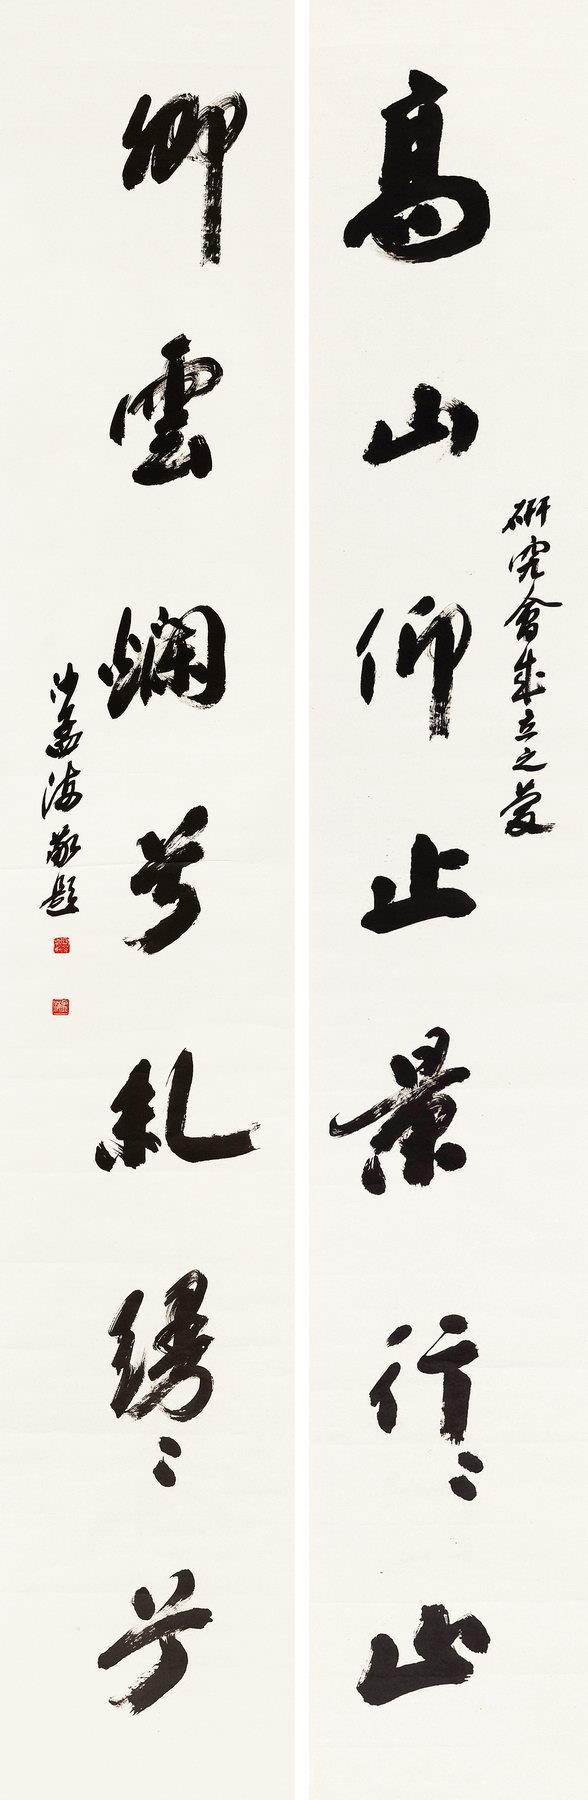 研究會成立之慶
高山仰止景行〻止
卿雲爛兮糺縵〻兮
沙孟海敬題